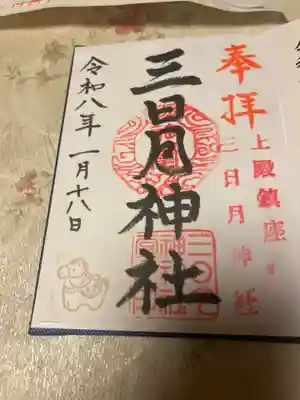 奉拝
上殿鎮座
三日月神社
三日月神社
令和八年一月十八日